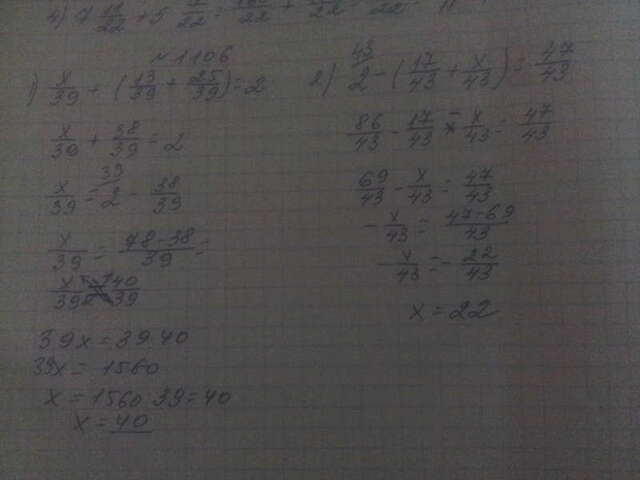 4) 7 11/22 + 5 7/22 =
№ 1106
1) x/39 + (13/39 + 25/39) = 2
x/39 + 38/39 = 2
39
x/39 = 2 - 38/39
x/39 = 78-38/39 =
x/39 = 40/39
39x = 39 40
39x = 1560
x = 1560 39 = 40
x = 40
43
2) 2 - (17/43 + x/43) = 47/43
86/43 - 17/43 - x/43 = 47/43
69/43 - x/43 = 47/43
- x/43 = 47-69/43
- x/43 = - 22/43
x = 22